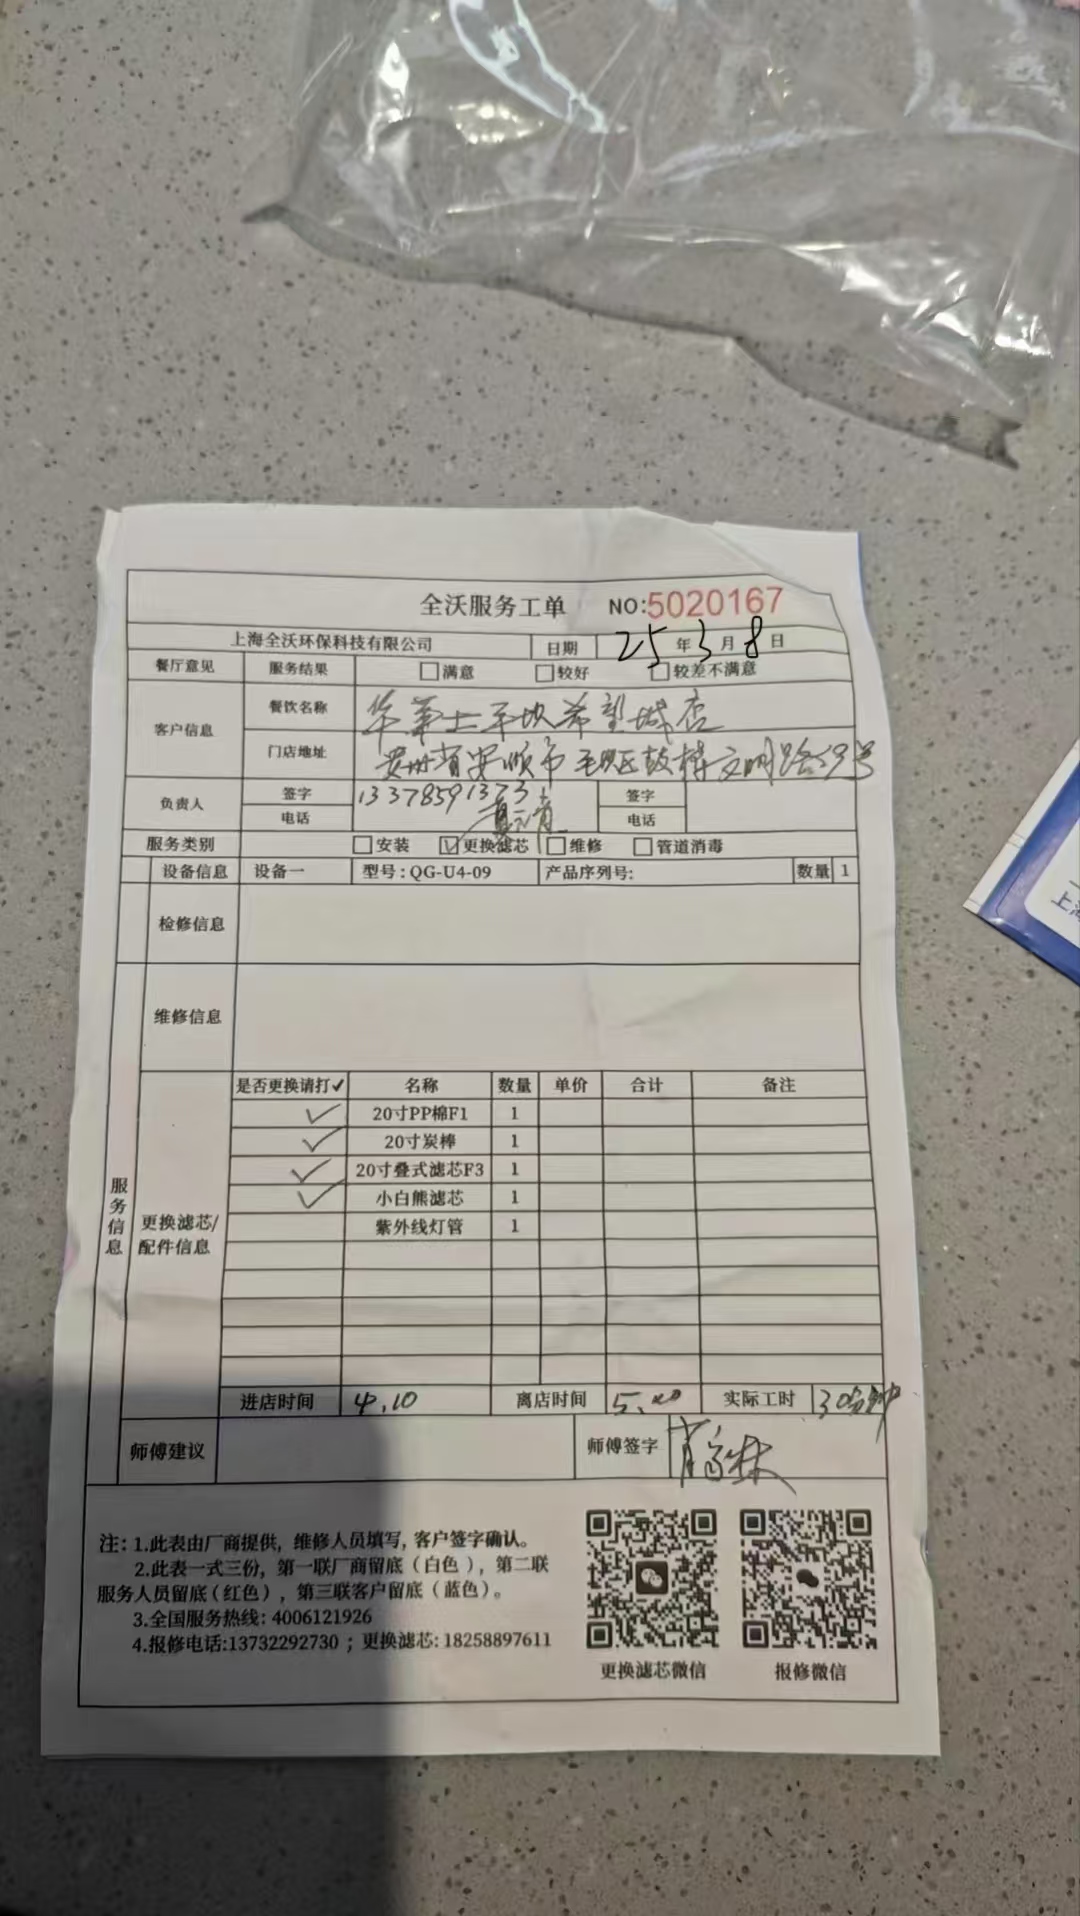 全沃服务工单 NO:5020167
上海全沃环保科技有限公司 日期 25年3月8日
餐厅意见 服务结果 满意 较好 较差不满意
客户信息 餐饮名称 华莱士平坝希望城店
门店地址 贵州省安顺市平坝区鼓楼文明路59号
负责人 签字 13378591373 签字
电话 电话
服务类别 安装 ✓更换滤芯 维修 管道消毒
设备信息 设备一 型号:QG-U4-09 产品序列号: 数量 1
检修信息
维修信息
服务信息
更换滤芯/配件信息
是否更换请打✓ 名称 数量 单价 合计 备注
✓ 20寸PP棉F1 1
✓ 20寸炭棒 1
✓ 20寸叠式滤芯F3 1
✓ 小白熊滤芯 1
紫外线灯管 1
进店时间 4.10 离店时间 5.00 实际工时 30分钟
师傅建议 师傅签字
注: 1.此表由厂商提供, 维修人员填写, 客户签字确认。
2.此表一式三份, 第一联厂商留底(白色), 第二联
服务人员留底(红色), 第三联客户留底(蓝色)。
3.全国服务热线: 4006121926
4.报修电话:13732292730 ; 更换滤芯: 18258897611
更换滤芯微信 报修微信
上海